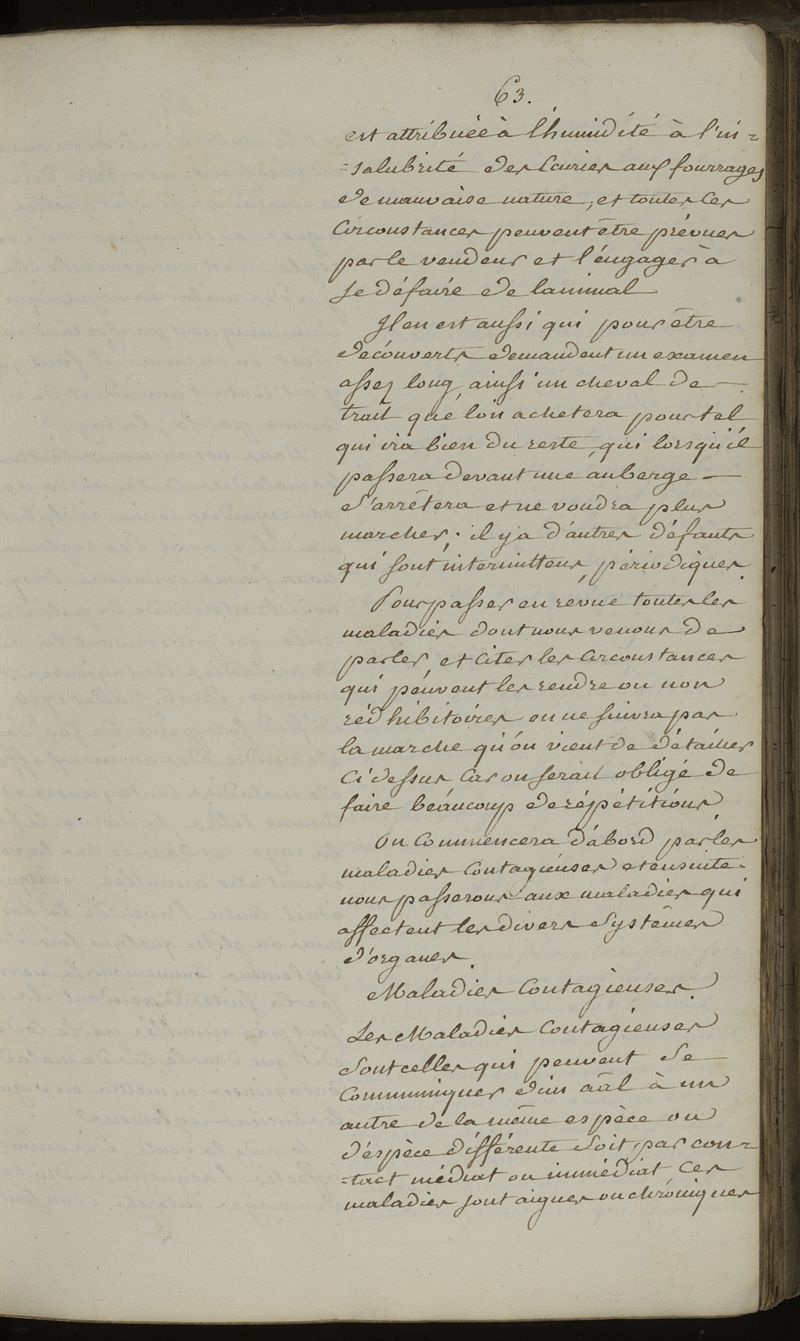 63.
est attribuée à l'humidité à l'in=
=salubrité des Ecuries aux fourrages
de mauvaise nature, et toutes ces
circonstances peuvent être prévues
par le vendeur et l'engager à
se défaire de lanimal
Il en est aussi qui pour être
découverts demandent un examen
assez long, ainsi un cheval de —
trait que l'on achetera pour tel
qui ira bien du reste, qui lorsqu'il
passera devant une auberge —
s'arrêtera et ne voudra plus
marcher. il y a d'autres défauts
qui sont intermittens, périodiques.
Pour passer en revue toutes les
maladies dont nous venons de
parler, et citer les circonstances
qui peuvent les rendre ou non
rédhibitoires on ne suivra pas
la marche qu'on vient de détailler
ci dessus car on serait obligé de
faire beaucoup de répétitions
On commencera d'abord par les
maladies contagieuses et ensuite
nous passerons aux maladies qui
affectent les divers systêmes
d'organes.
Maladies Contagieuses.
Les Maladies Contagieuses
sont celles qui peuvent se
communiquer d'un aãl à un
autre de la même espèce ou
d'espèce différente soit par con=
=tact médiat ou immédiat ces
maladies sont aigues ou chroniques